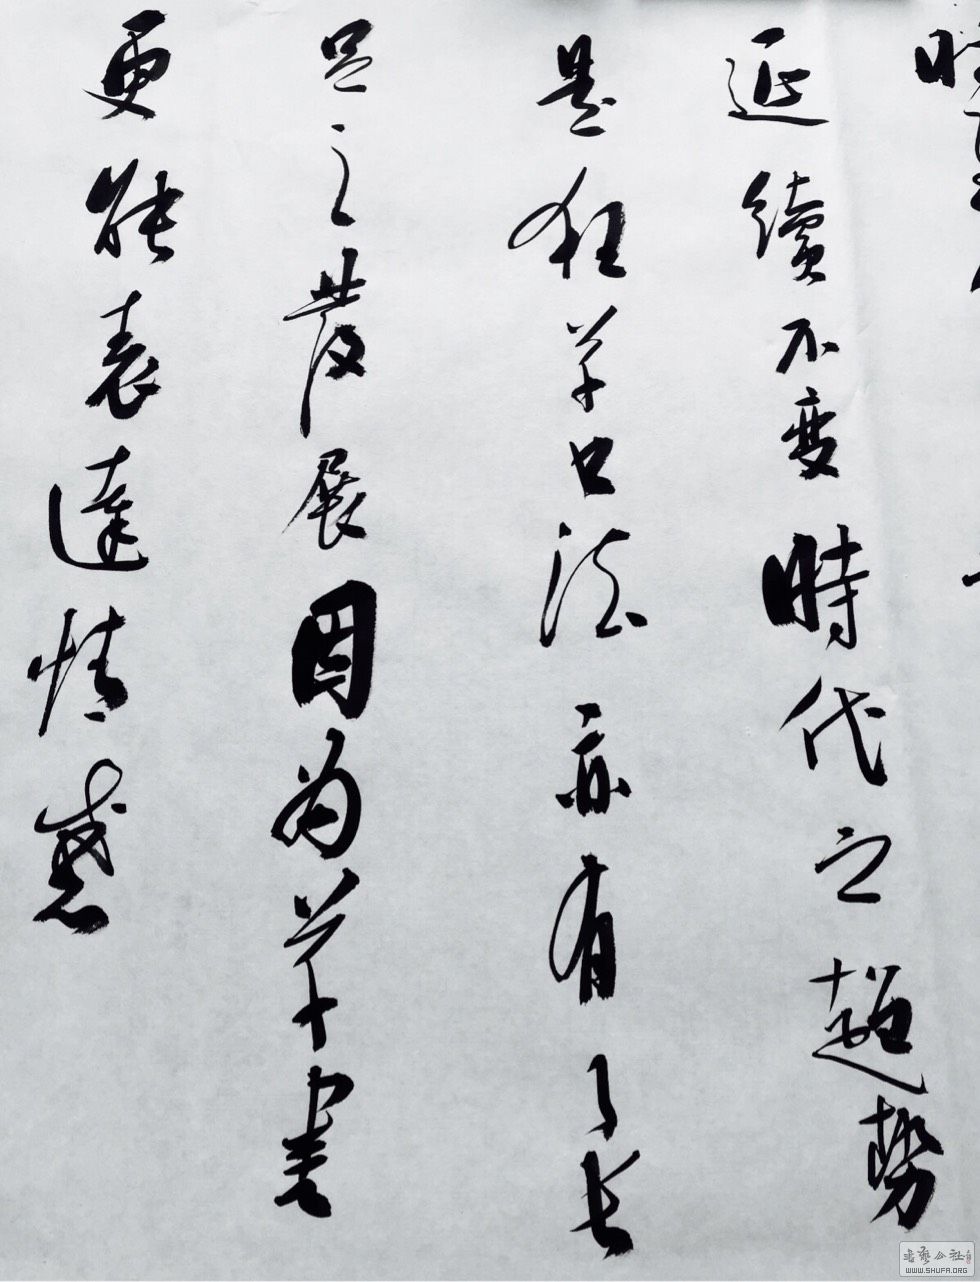 延續不變時代之趨勢
是狂草書法亦有了長
足之發展因為草書
更能表達情感
WWW.SHUFA.ORG